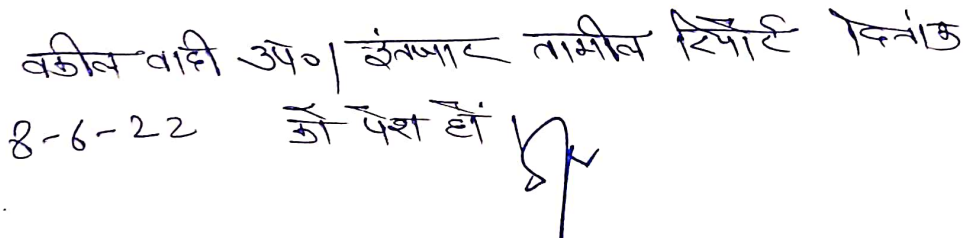 वकील वादी उप०। इंतजार तामील रिपोर्ट दिनांक
8-6-22 को पेश हों